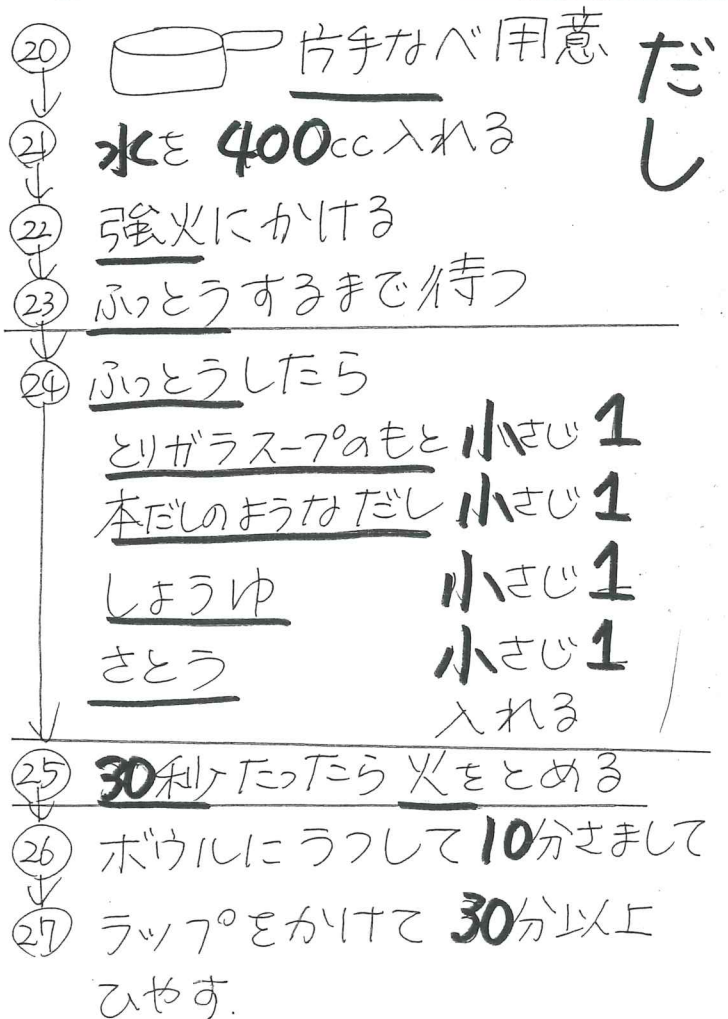 だし
⑳ 片手なべ用意
㉑ 水を 400cc入れる
㉒ 強火にかける
㉓ ふっとうするまで待つ
㉔ ふっとうしたら
とりガラスープのもと 小さじ 1
本だしのようなだし 小さじ 1
しょうゆ 小さじ 1
さとう 小さじ 1
入れる
㉕ 30秒たったら火をとめる
㉖ ボウルにうつして10分さまして
㉗ ラップをかけて 30分以上
ひやす.